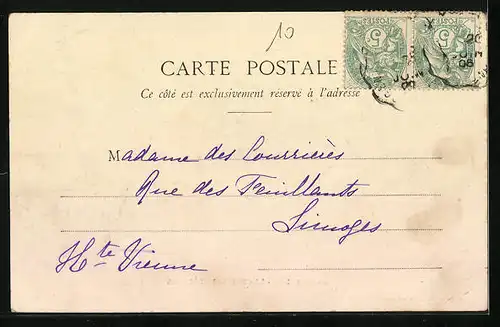 10
CARTE POSTALE
Ce côté est exclusivement réservé à l'adresse
Madame des Courrières
Rue des Feuillants
Limoges
Hte Vienne